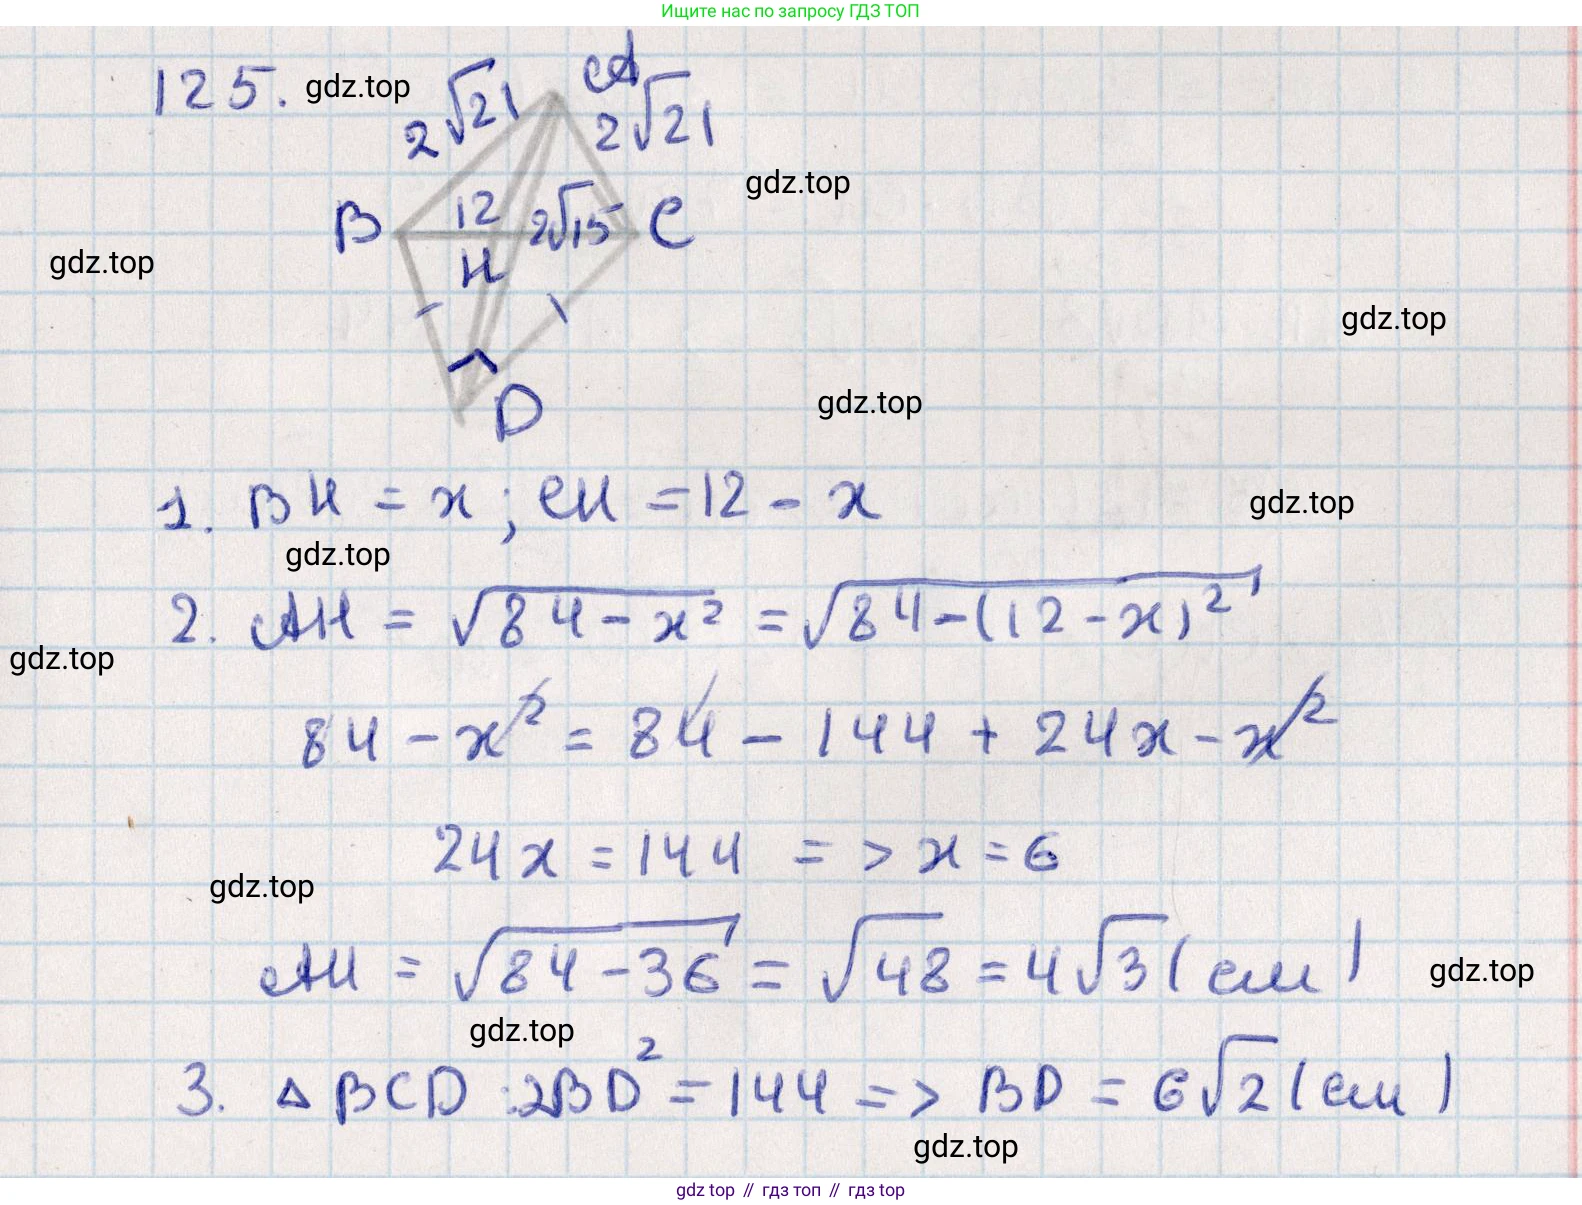 Ищите нас по запросу ГДЗ ТОП
125. gdz.top
A
2√21
2√21
gdz.top
B 12 2√15 C
gdz.top
H
gdz.top
gdz.top
D
1. BH = x; CH = 12 - x
gdz.top
gdz.top
2. AH = √84 - x² = √84 - (12 - x)²
gdz.top
84 - x² = 84 - 144 + 24x - x²
24x = 144 => x = 6
gdz.top
AH = √84 - 36 = √48 = 4√3 (см)
gdz.top
gdz.top
3. △ BCD : 2BD² = 144 => BD = 6√2 (см)
gdz.top
gdz top // гдз топ // гдз top